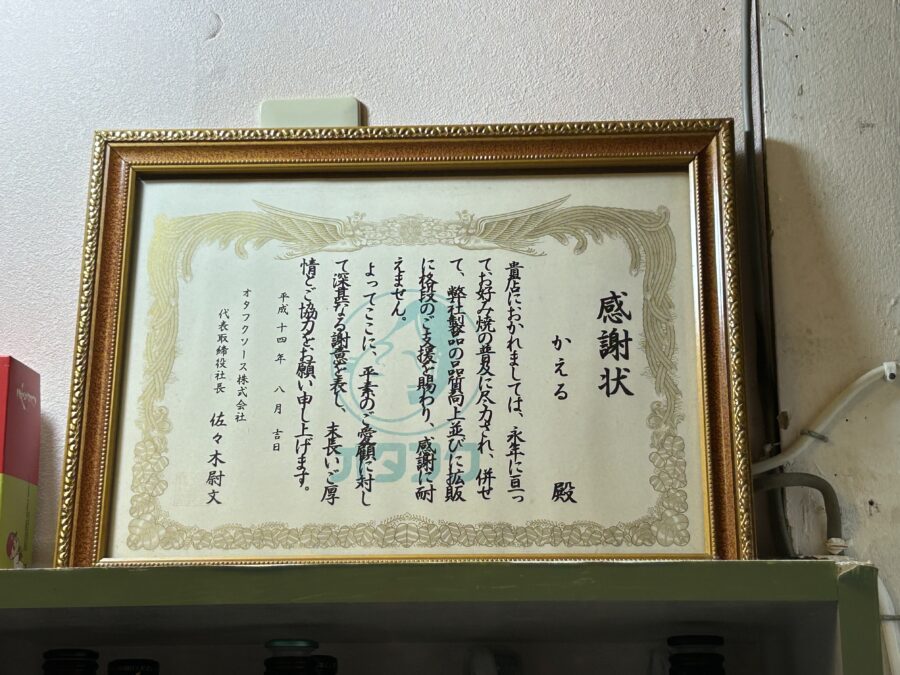 感謝状
かえる 殿
貴店におかれましては、永年に亘っ
てお好み焼の普及に尽力され、併せ
て、弊社製品の品質向上並びに拡販
に格段のご支援を賜わり、感謝に耐
えません。
よってここに、平素のご愛顧に対し
て深甚なる謝意を表し、末長いご厚
情とご協力をお願い申し上げます。
平成十四年 八月 吉日
オタフクソース株式会社
代表取締役社長 佐々木尉文
オタフク